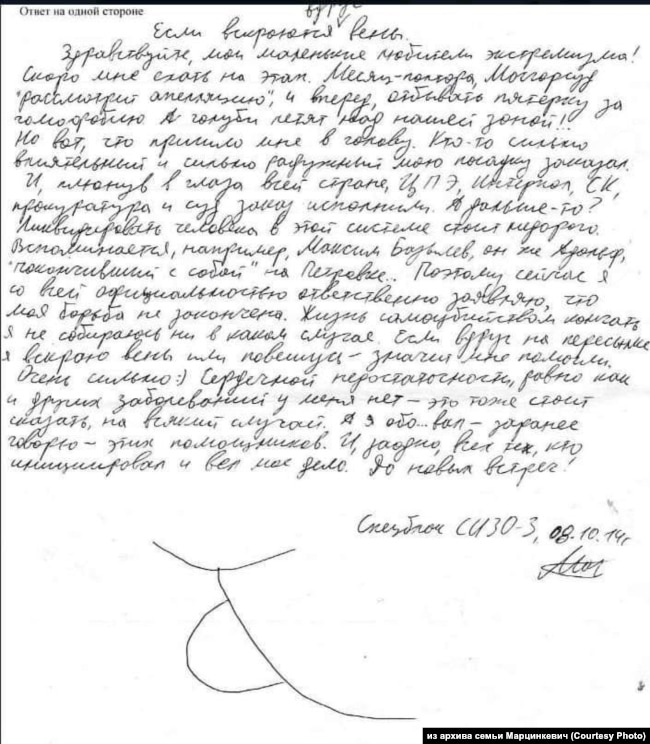 Ответ на одной стороне
вдруг
Если вскроются вены.
Здравствуйте, мои маленькие любители экстремизма!
Скоро мне ехать на этап. Месяц-полтора, Мосгорсуд
"рассмотрит апелляцию", и вперед, отбывать пятерку за
гомофобию А голуби летят над нашей зоной!!
Но вот, что пришло мне в голову. Кто-то сильно
влиятельный и сильно радужный мою посадку заказал.
И, плюнув в глаза всей стране, ЦПЭ, Интерпол, СК,
прокуратура и суд заказ исполнили. А дальше-то?
Ликвидировать человека в этой системе стоит недорого.
Вспоминается, например, Максим Базылев, он же Адольф,
"покончивший с собой" на Петровке.. Поэтому сейчас я
со всей официальностью ответственно заявляю, что
моя борьба не закончена. Жизнь самоубийством кончать
я не собираюсь ни в каком случае. Если вдруг на пересылке
я вскрою вены или повешусь - значит мне помогли.
Очень сильно:) Сердечной недостаточности, равно как
и других заболеваний у меня нет - это тоже стоит
сказать, на всякий случай. А я обо...вал - заранее
говорю - этих помощников. И, заодно, всех тех, кто
инициировал и вел мое дело. До новых встреч!
Спецблок СИЗО-3, 08.10.14г
из архива семьи Марцинкевич (Courtesy Photo)